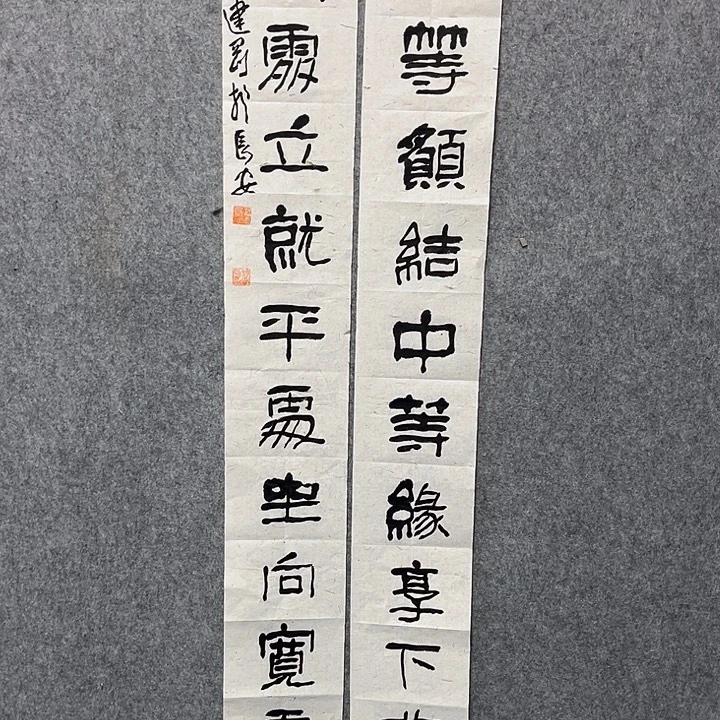 等願結中等緣享下
處立就平處坐向寬
建 於長安